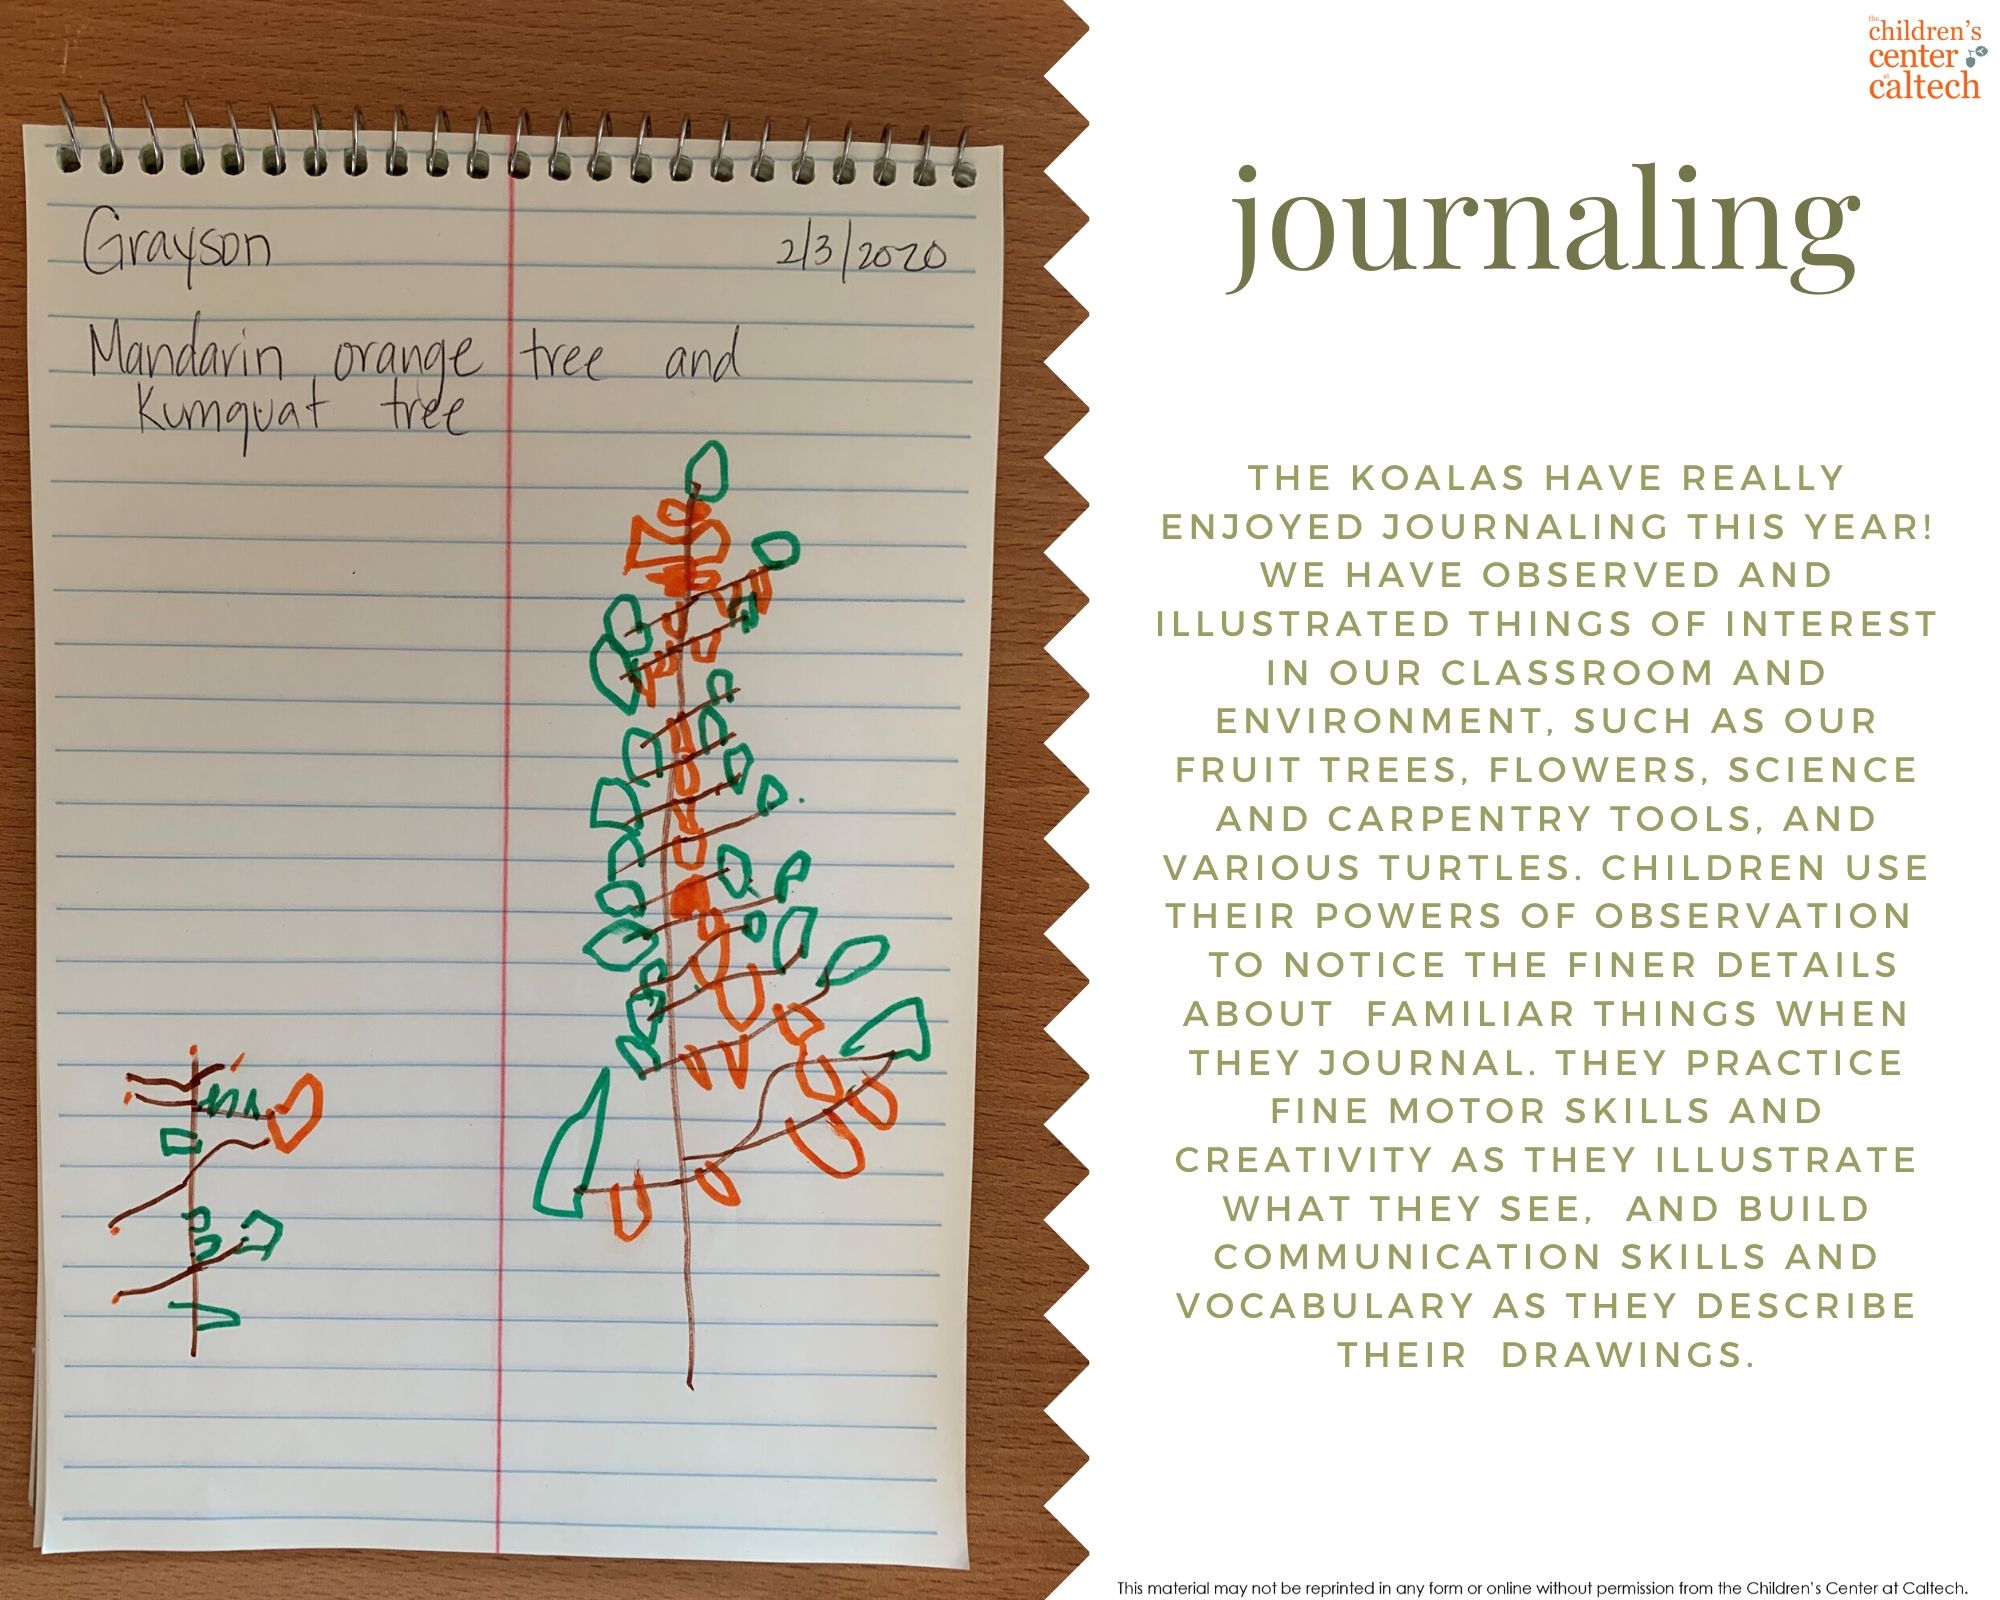 Grayson 2/3/2020
Mandarin orange tree and
Kumquat tree
the
children's
center
at
caltech
journaling
THE KOALAS HAVE REALLY
ENJOYED JOURNALING THIS YEAR!
WE HAVE OBSERVED AND
ILLUSTRATED THINGS OF INTEREST
IN OUR CLASSROOM AND
ENVIRONMENT, SUCH AS OUR
FRUIT TREES, FLOWERS, SCIENCE
AND CARPENTRY TOOLS, AND
VARIOUS TURTLES. CHILDREN USE
THEIR POWERS OF OBSERVATION
TO NOTICE THE FINER DETAILS
ABOUT FAMILIAR THINGS WHEN
THEY JOURNAL. THEY PRACTICE
FINE MOTOR SKILLS AND
CREATIVITY AS THEY ILLUSTRATE
WHAT THEY SEE, AND BUILD
COMMUNICATION SKILLS AND
VOCABULARY AS THEY DESCRIBE
THEIR DRAWINGS.
This material may not be reprinted in any form or online without permission from the Children's Center at Caltech.